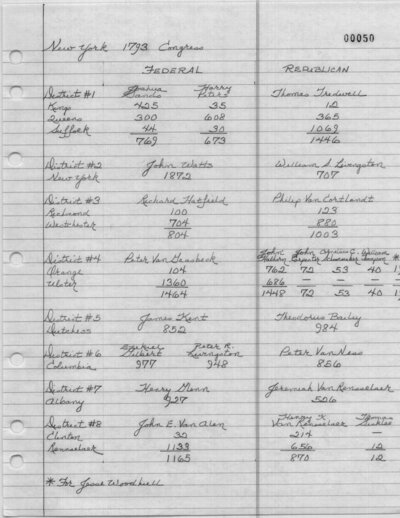 00050
New York 1793 Congress
FEDERAL REPUBLICAN
District #1 Joshua Sands Harry Peters Thomas Tredwell
Kings 425 35 12
Queens 300 608 365
Suffolk 44 30 1069
769 673 1446
District #2 John Watts William S Livingston
New York 1872 707
District #3 Richard Hatfield Philip Van Cortlandt
Richmond 100 123
Westchester 704 880
804 1003
District #4 Peter Van Gaasbeck John Hathorn John Carpenter Cornelius C. Schoonmaker William Thompson
Orange 104 762 72 53 40
Ulster 1360 686 — — —
1464 1448 72 53 40
District #5 James Kent Theodorus Bailey
Dutchess 852 984
District #6 Ezekiel Gilbert Peter R. Livingston Peter Van Ness
Columbia 977 948 856
District #7 Henry Glenn Jeremiah Van Rensselaer
Albany 927 526
District #8 John E. Van Alen Henry K. Van Rensselaer Thomas Sickles
Clinton 32 214 —
Rensselaer 1133 656 12
1165 870 12
* For Jesse Woodhull